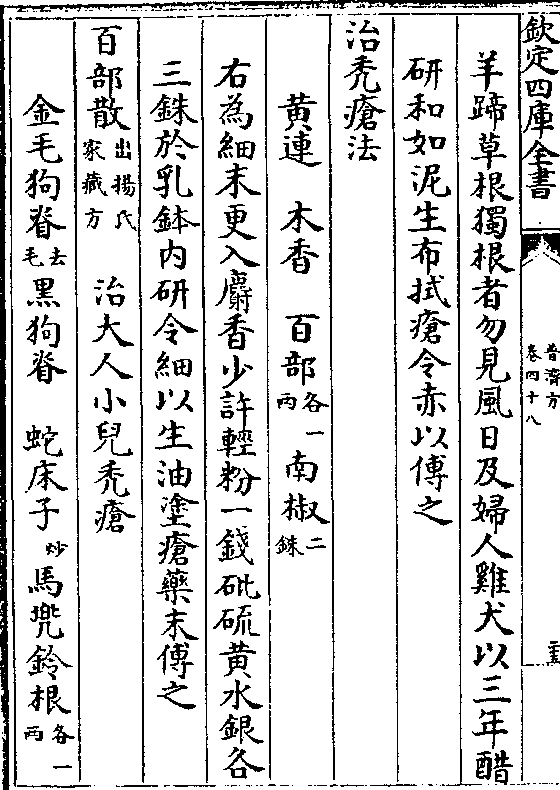 欽定四庫全書
普濟方
卷四十八
羊蹄草根獨根者勿見風日及婦人雞犬以三年醋
研和如泥生布拭瘡令赤以傅之
治禿瘡法
黄連　木香　百部各一兩　南椒二銖
右為細末更入麝香少許輕粉一錢砒硫黄水銀各
三銖於乳鉢内研令細以生油塗瘡藥末傅之
百部散出揚氏家藏方　治大人小兒禿瘡
金毛狗脊去毛　黑狗脊　蛇床子炒　馬兜鈴根各一兩